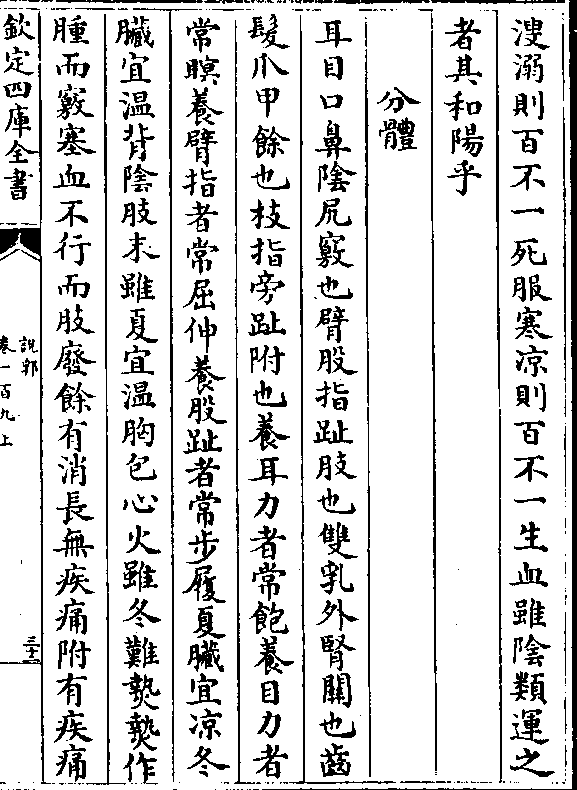 溲溺則百不一死服寒凉則百不一生血雖陰類運之
者其和陽乎
分體
耳目口鼻陰尻竅也臂股指趾肢也雙乳外腎關也齒
髮爪甲餘也枝指旁趾附也養耳力者常飽養目力者
常瞑養臂指者常屈伸養股趾者常步履夏臟宜凉冬
臟宜温背陰肢末雖夏宜温胸包心火雖冬難𤍠𤍠作
腫而竅塞血不行而肢廢餘有消長無疾痛附有疾痛
欽定四庫全書
說郛
卷一百九上
三十二